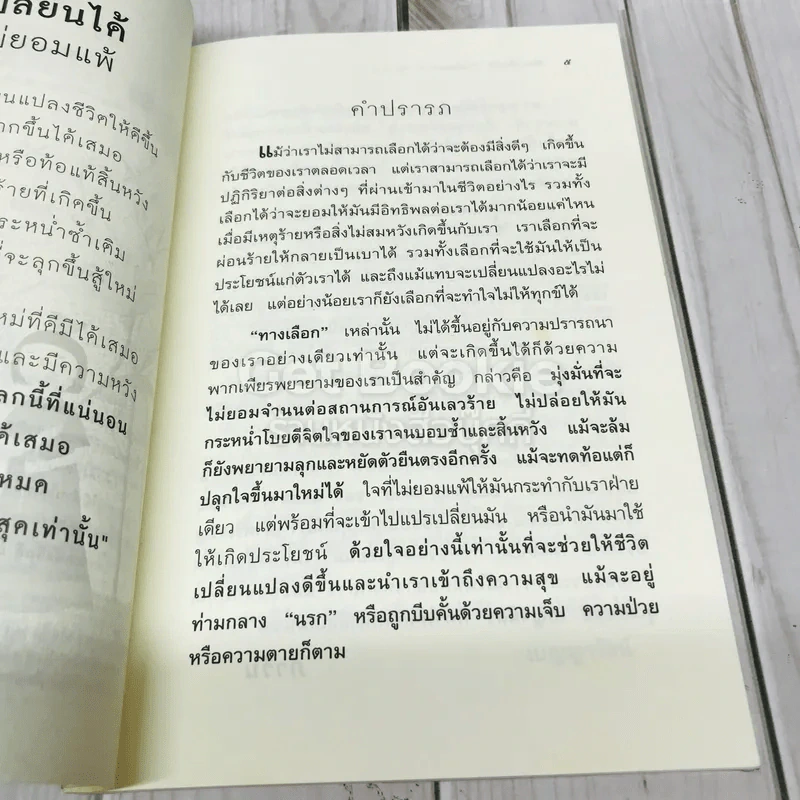 ปลี่ยนได้
ม่ยอมแพ้
นแปลงชีวิตให้ดีขึ้น
ากขึ้นได้เสมอ
หรือท้อแท้สิ้นหวัง
ร้ายที่เกิดขึ้น
ระหน่ำซ้ำเติม
ที่จะลุกขึ้นสู้ใหม่
หม่ที่ดีมีได้เสมอ
และมีความหวัง
ลกนี้ที่แน่นอน
ด้เสมอ
หมด
สุดเท่านั้น"
๕
คำปรารภ
แม้ว่าเราไม่สามารถเลือกได้ว่าจะต้องมีสิ่งดีๆ เกิดขึ้น
กับชีวิตของเราตลอดเวลา แต่เราสามารถเลือกได้ว่าเราจะมี
ปฏิกิริยาต่อสิ่งต่างๆ ที่ผ่านเข้ามาในชีวิตอย่างไร รวมทั้ง
เลือกได้ว่าจะยอมให้มันมีอิทธิพลต่อเราได้มากน้อยแค่ไหน
เมื่อมีเหตุร้ายหรือสิ่งไม่สมหวังเกิดขึ้นกับเรา เราเลือกที่จะ
ผ่อนร้ายให้กลายเป็นเบาได้ รวมทั้งเลือกที่จะใช้มันให้เป็น
ประโยชน์แก่ตัวเราได้ และถึงแม้แทบจะเปลี่ยนแปลงอะไรไม่
ได้เลย แต่อย่างน้อยเราก็ยังเลือกที่จะทำใจไม่ให้ทุกข์ได้
“ทางเลือก” เหล่านั้น ไม่ได้ขึ้นอยู่กับความปรารถนา
ของเราอย่างเดียวเท่านั้น แต่จะเกิดขึ้นได้ก็ด้วยความ
พากเพียรพยายามของเราเป็นสำคัญ กล่าวคือ มุ่งมั่นที่จะ
ไม่ยอมจำนนต่อสถานการณ์อันเลวร้าย ไม่ปล่อยให้มัน
กระหน่ำโบยตีจิตใจของเราจนบอบช้ำและสิ้นหวัง แม้จะล้ม
ก็ยังพยายามลุกและหยัดตัวยืนตรงอีกครั้ง แม้จะทดท้อแต่ก็
ปลุกใจขึ้นมาใหม่ได้ ใจที่ไม่ยอมแพ้ให้มันกระทำกับเราฝ่าย
เดียว แต่พร้อมที่จะเข้าไปแปรเปลี่ยนมัน หรือนำมันมาใช้
ให้เกิดประโยชน์ ด้วยใจอย่างนี้เท่านั้นที่จะช่วยให้ชีวิต
เปลี่ยนแปลงดีขึ้นและนำเราเข้าถึงความสุข แม้จะอยู่
ท่ามกลาง “นรก” หรือถูกบีบคั้นด้วยความเจ็บ ความป่วย
หรือความตายก็ตาม